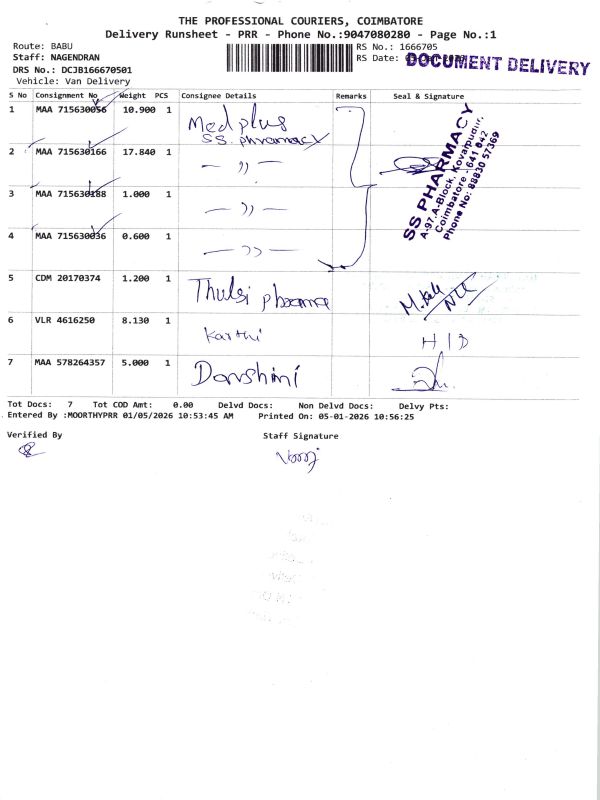 THE PROFESSIONAL COURIERS, COIMBATORE
Delivery Runsheet - PRR - Phone No.:9047080280 - Page No.:1
Route: BABU
Staff: NAGENDRAN
DRS No.: DCJB166670501
Vehicle: Van Delivery
RS No.: 1666705
RS Date:
DOCUMENT DELIVERY
S No Consignment No Weight PCS Consignee Details Remarks Seal & Signature
1 MAA 715630056 10.900 1 Medplus
SS. phramacy
2 MAA 715630166 17.840 1 — ,, —
3 MAA 715630188 1.000 1 — ,, —
4 MAA 715630036 0.600 1 — ,, —
SS PHARMACY
A-97, A-Block, Kovaipudur,
Coimbatore - 641 042
Phone No: 88830 57369
5 CDM 20170374 1.200 1 Thulsi pharma
6 VLR 4616250 8.130 1 Karthi H/D
7 MAA 578264357 5.000 1 Darshini
Tot Docs: 7 Tot COD Amt: 0.00 Delvd Docs: Non Delvd Docs: Delvy Pts:
Entered By :MOORTHYPRR 01/05/2026 10:53:45 AM Printed On: 05-01-2026 10:56:25
Verified By Staff Signature